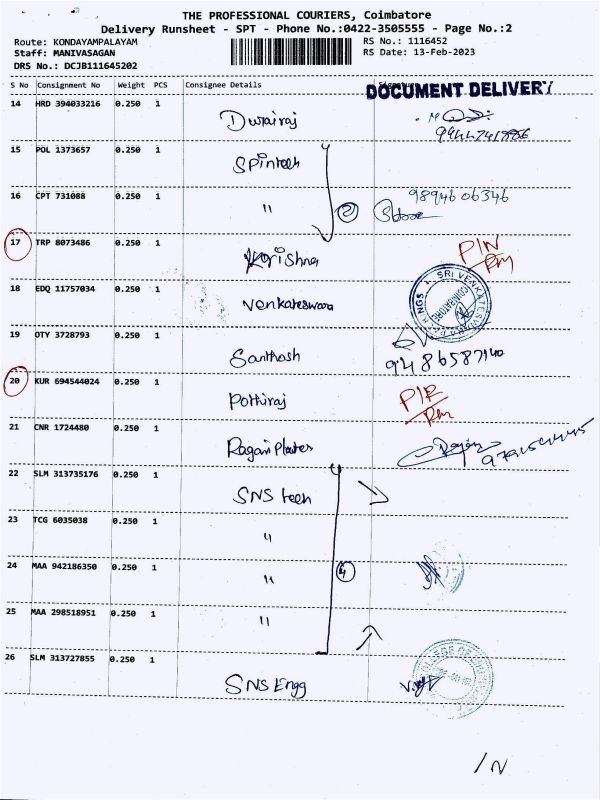 THE PROFESSIONAL COURIERS, Coimbatore
Delivery Runsheet - SPT - Phone No.:0422-3505555 - Page No.:2
Route: KONDAYAMPALAYAM RS No.: 1116452
Staff: MANIVASAGAN RS Date: 13-Feb-2023
DRS No.: DCJB111645202
S No Consignment No Weight PCS Consignee Details
DOCUMENT DELIVERY
14 HRD 394033216 0.250 1 Durairaj
9444741886
15 POL 1373657 0.250 1 Spintech
16 CPT 731088 0.250 1 " 2 9894606346
17 TRP 8073486 0.250 1 Krishna
18 EDQ 11757034 0.250 1 Venkateswara
SRI VENKATESWARA
COIMBATORE
19 OTY 3728793 0.250 1 Santhosh
9486587140
20 KUR 694544024 0.250 1 Pothiraj
21 CNR 1724480 0.250 1 Ragavi Plates
22 SLM 313735176 0.250 1 SNS tech
23 TCG 6035038 0.250 1 "
24 MAA 942186350 0.250 1 " 4
25 MAA 298518951 0.250 1 "
26 SLM 313727855 0.250 1 SNS Engg